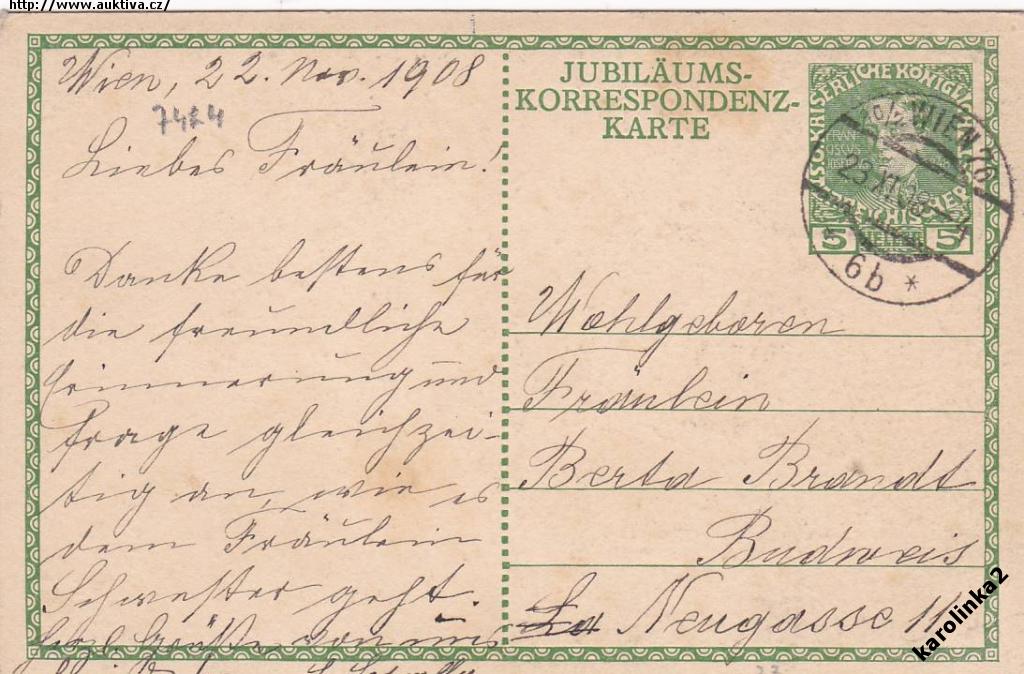 http://www.auktiva.cz/
Wien, 22. Nov. 1908
7424
Liebes Fräulein!
Danke bestens für
die freundliche
Erinnerung und
frage gleichzei-
tig an, wie es
dem Fräulein
Schwester geht.
Herzl. Grüße von uns
JUBILÄUMS-
KORRESPONDENZ-
KARTE
KAISERLICHE KÖNIGL
REICHISCHE
5 5
WIEN
23 XI 08
6b *
Wohlgeboren
Fräulein
Berta Brandt
Budweis
Neugasse
karolinka2